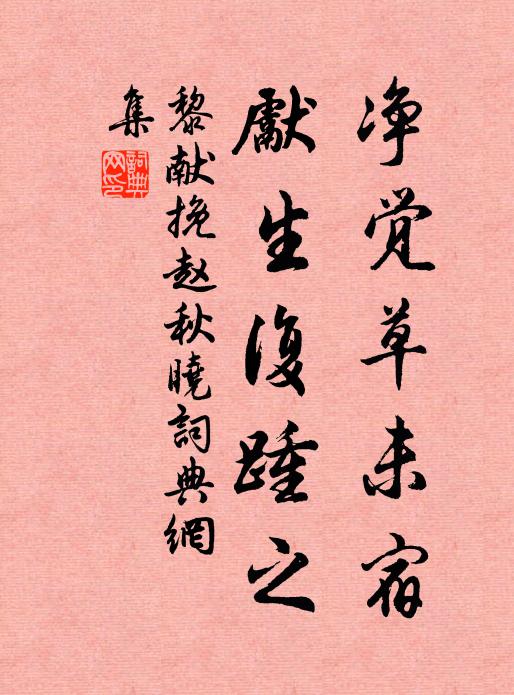 净觉草未宿
献生復踵之
黎献挽赵秋曉詞典網
集
詞典网印